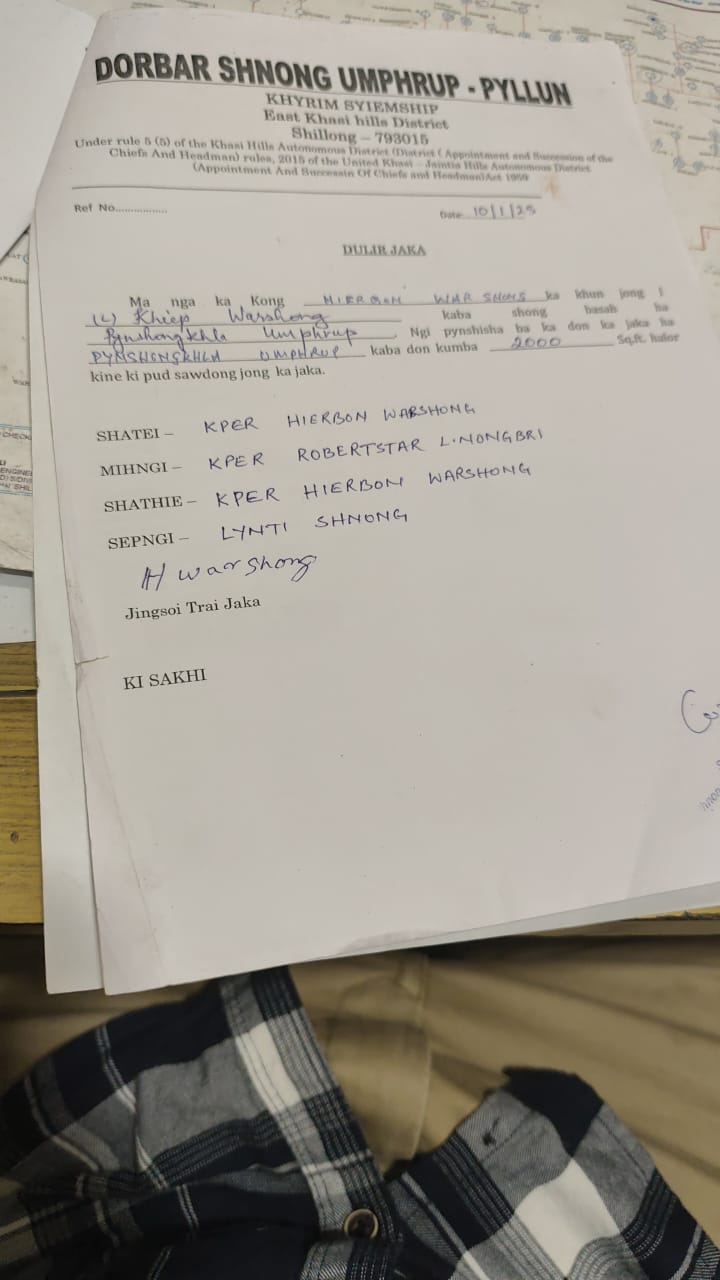 DORBAR SHNONG UMPHRUP - PYLLUN
KHYRIM SYIEMSHIP
East Khasi hills District
Shillong – 793015
Under rule 5 (5) of the Khasi Hills Autonomous District (District ( Appointment and Succession of the
Chiefs And Headman) rules, 2015 of the United Khasi – Jaintia Hills Autonomous District
(Appointment And Successin Of Chiefs and Headman)Act 1959
Ref No................
Date 10/1/25
DULIR JAKA
Ma nga ka Kong HIERBON WAR SHONG ka khun jong I
(L) Khiep Warshong kaba shong basah ha
Pynshongkhla Umphrup. Ngi pynshisha ba ka don ka jaka ha
PYNSHONGKHLA UMPHRUP kaba don kumba 2000 Sq.ft. halor
kine ki pud sawdong jong ka jaka.
SHATEI – KPER HIERBON WARSHONG
MIHNGI – KPER ROBERTSTAR L. NONGBRI
SHATHIE – KPER HIERBON WARSHONG
SEPNGI – LYNTI SHNONG
H Warshong
Jingsoi Trai Jaka
KI SAKHI
CHECK
ENGINE